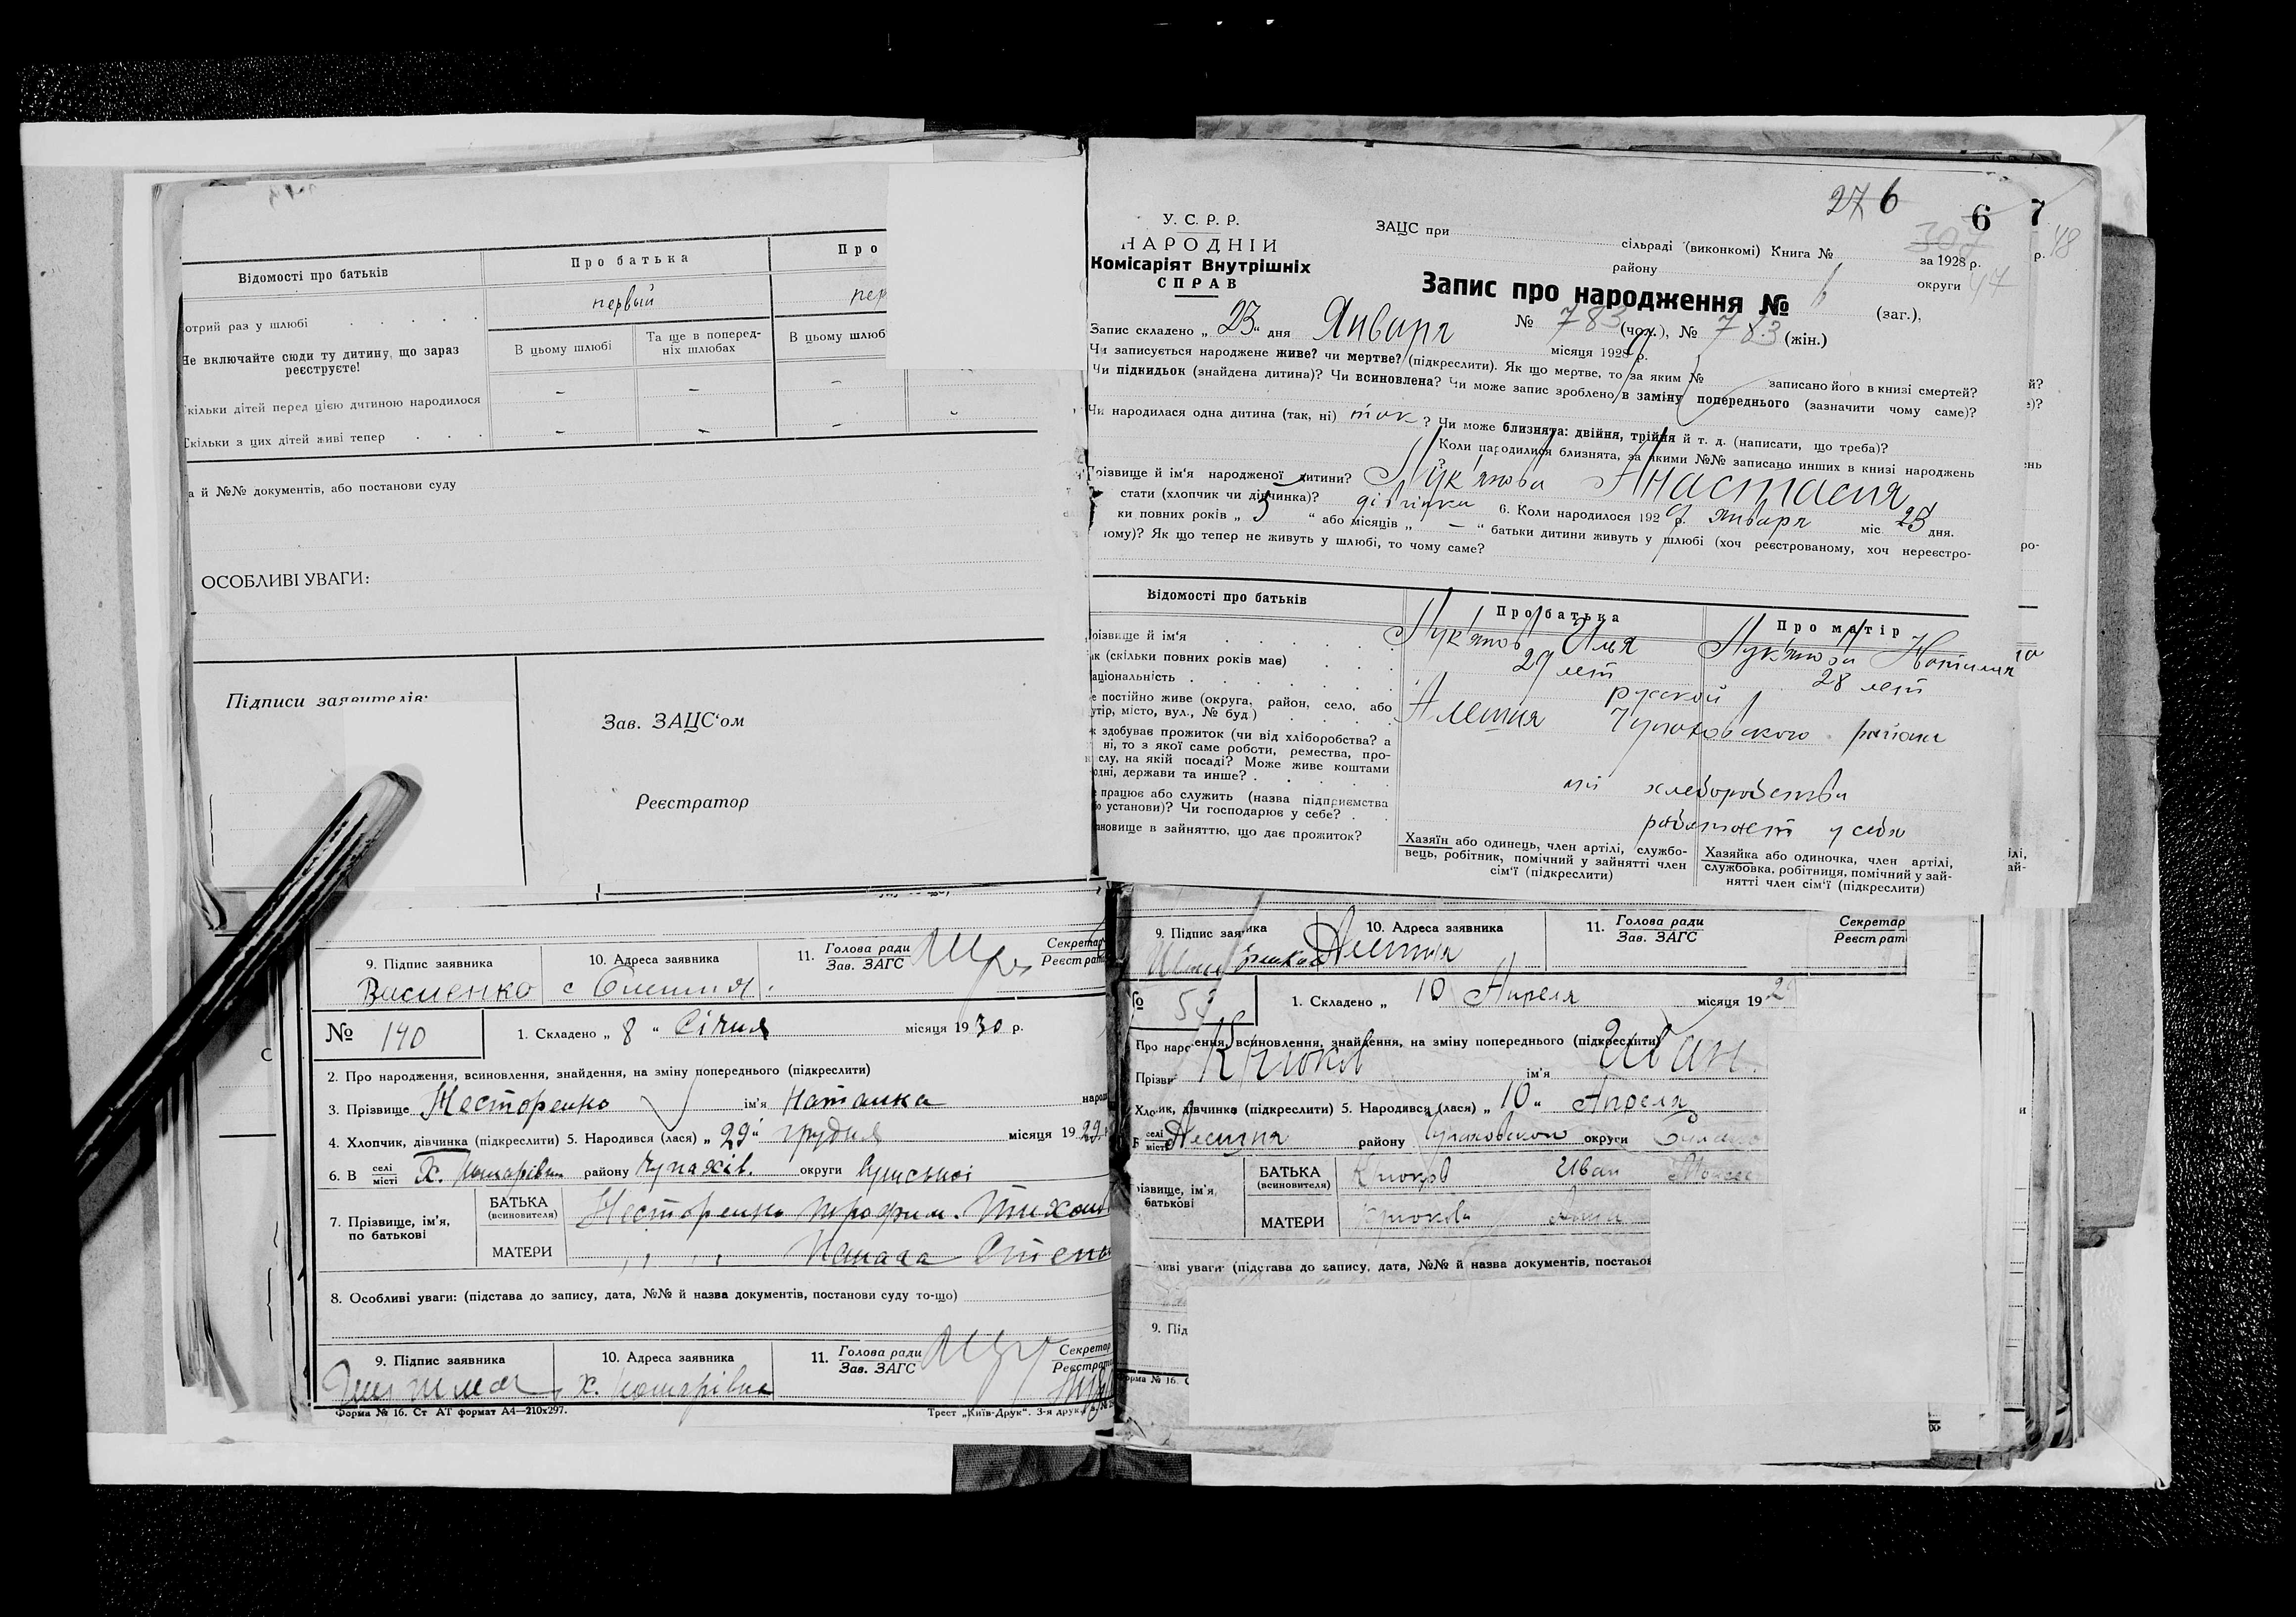 Відомості про батьків
Про батька
Про
первый
пер
отрий раз у шлюбі
Не включайте сюди ту дитину, що зараз реєструєте!
В цьому шлюбі
Та ще в поперед-
ніх шлюбах
В цьому шлюб
кільки дітей перед цією дитиною народилося
— — —
Скільки з цих дітей живі тепер
— — —
а й №№ документів, або постанови суду
ОСОБЛИВІ УВАГИ:
Підписи заявителів:
Зав. ЗАЦС'ом
Реєстратор
9. Підпис заявника
10. Адреса заявника
11. Голова ради
Зав. ЗАГС
Секретар
Реєстрат
Василенко
№ 140
1. Складено „ 8 “ Січня місяця 1930 р.
2. Про народження, всиновлення, знайдення, на зміну попереднього (підкреслити)
3. Прізвище Несторенко ім'я Наталка народ
4. Хлопчик, дівчинка (підкреслити) 5. Народився (лася) „ 29 “ грудня місяця 1929
6. В селі
місті
району Чупахів. округи Сумської
7. Прізвище, ім'я,
по батькові
БАТЬКА
(всиновителя)
Несторенко Трофим Тихон
МАТЕРИ
8. Особливі уваги: (підстава до запису, дата, №№ й назва документів, постанови суду то-що)
9. Підпис заявника
10. Адреса заявника
11. Голова ради
Зав. ЗАГС
Секретар
Реєстрато
Форма № 16. Ст АТ формат А4—210х297.
Трест „Київ-Друк“. 3-я друк.
27 6
6
7
У. С. Р. Р.
НАРОДНІЙ
Комісаріят Внутрішніх
СПРАВ
ЗАЦС при сільраді (виконкомі) Книга № за 1928 р.
району округи
р. 48
47
Запис про народження № (заг.),
№ 783 (чол.), № 783 (жін.)
Запис складено „ 23 “ дня Января місяця 1928 р.
Чи записується народжене живе? чи мертве? (підкреслити). Як що мертве, то за яким № записано його в книзі смертей?
Чи підкидьок (знайдена дитина)? Чи всиновлена? Чи може запис зроблено в заміну попереднього (зазначити чому саме)?
Чи народилася одна дитина (так, ні) так ? Чи може близнята: двійня, трійня й т. д. (написати, що треба)?
Коли народилися близнята, за якими №№ записано инших в книзі народжень
?
Прізвище й ім'я народженої дитини? Лук'янова Анастасия
стати (хлопчик чи дівчинка)? дівчинка 6. Коли народилося 1929 р. Января міс. 23 дня.
ки повних років „ 5 “ або місяців „ — “ батьки дитини живуть у шлюбі (хоч реєстрованому, хоч нереєстро-
ому)? Як що тепер не живуть у шлюбі, то чому саме?
Відомості про батьків
Про батька
Про матір
різвище й ім'я
Лук'янов Илья
Лук'янова Наталия
ік (скільки повних років має)
29 лет
28 лет
аціональність
русской
е постійно живе (округа, район, село, або
утір, місто, вул., № буд)
Алешня Чупаховского района
к здобуває прожиток (чи від хліборобства? а
ні, то з якої саме роботи, ремества, про-
слу, на якій посаді? Може живе коштами
одні, держави та инше?
хлеборобства
е працює або служить (назва підприємства
о установи)? Чи господарює у себе?
работает у себя
ановище в зайняттю, що дає прожиток?
Хазяїн або одинець, член артілі, службо-
вець, робітник, помічний у зайнятті член
сім'ї (підкреслити)
Хазяйка або одиночка, член артілі,
службовка, робітниця, помічний у зай-
нятті член сім'ї (підкреслити)
9. Підпис заявника
10. Адреса заявника
11. Голова ради
Зав. ЗАГС
Секретар
Реєстрат
Алешня
№
1. Складено „ 10 Апреля місяця 192
Про народження, всиновлення, знайдення, на зміну попереднього (підкреслити)
Прізви Крюков ім'я Иван
Хлопчик, дівчинка (підкреслити) 5. Народився (лася) „ 10 “ Апреля
селі
місті
Алешня району Чупаховского округи
різвище, ім'я,
батькові
БАТЬКА
(всиновителя)
Крюков Иван
МАТЕРИ
Крюкова
ливі уваги: (підстава до запису, дата, №№ й назва документів, постанов
9. Під
орма № 16.